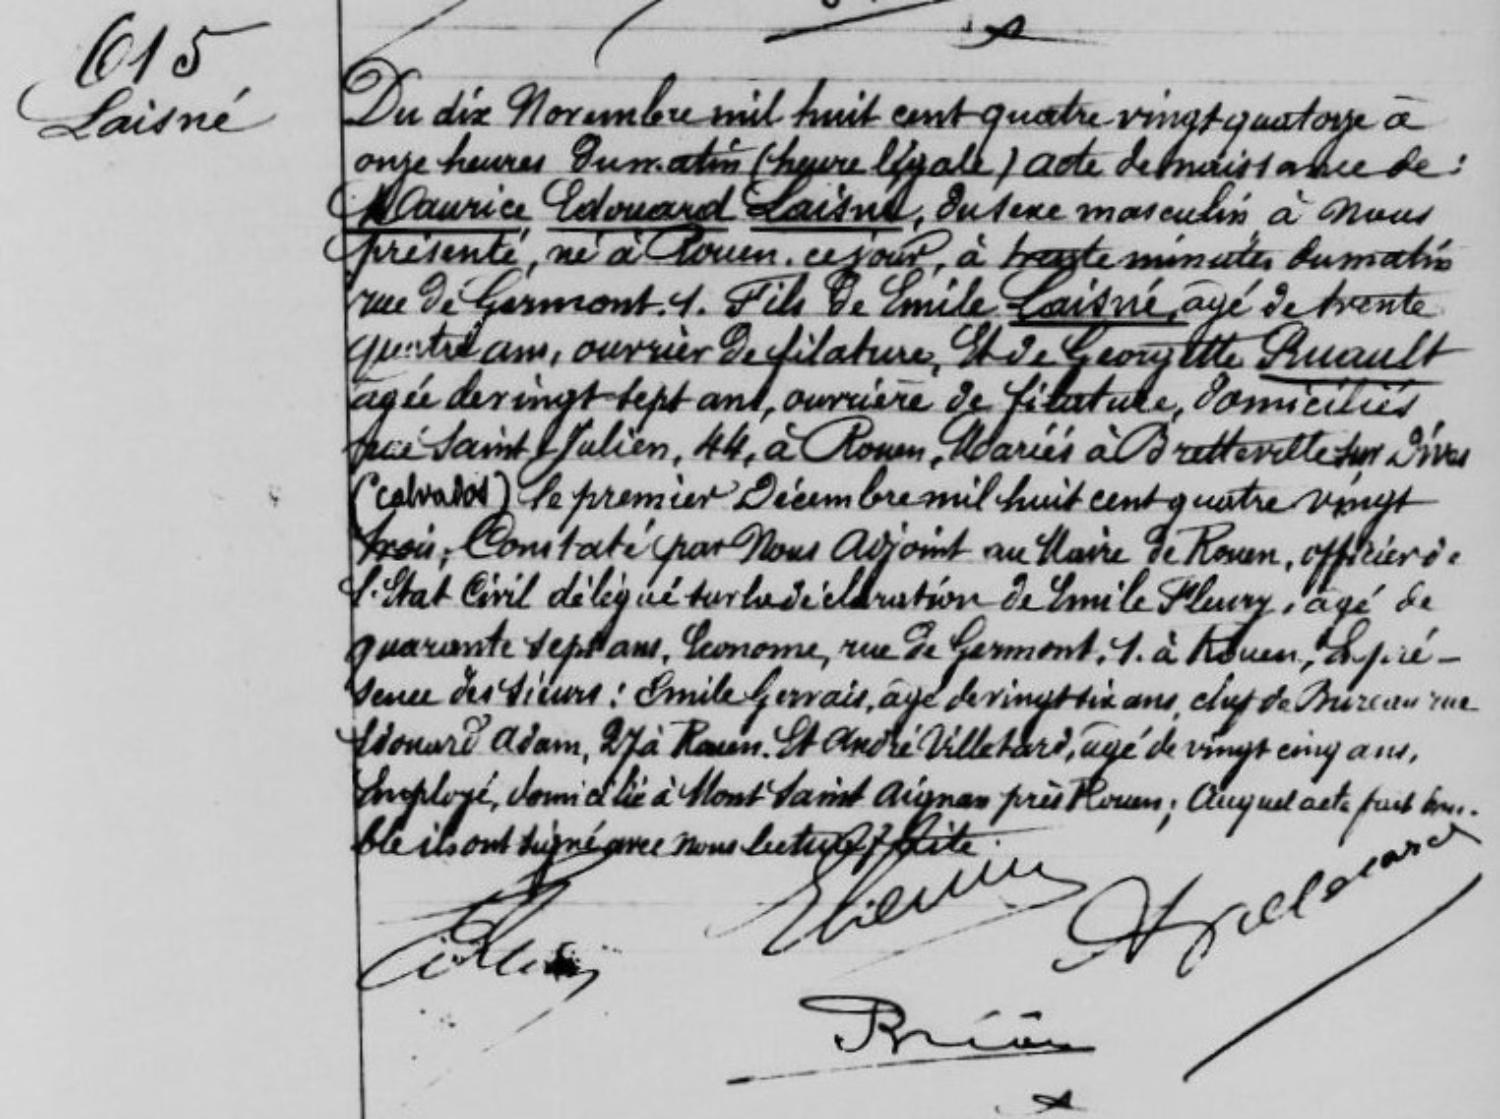 615
Laisné
Du dix Novembre mil huit cent quatre vingt quatorze à
onze heures du matin (heure légale) acte de naissance de :
Maurice Edouard Laisné, du sexe masculin, à nous
présenté, né à Rouen, ce jour, à trente minutes du matin
rue de Germont, 1. Fils de Emile Laisné, âgé de trente
quatre ans, ouvrier de filature, Et de Georgette Ruault
âgée de vingt sept ans, ouvrière de filature, domiciliés
rue Saint Julien, 44, à Rouen, Mariés à Bretteville sur Dives
(Calvados) le premier Décembre mil huit cent quatre vingt
trois; Constaté par Nous Adjoint au Maire de Rouen, officier de
l'Etat Civil délégué sur la déclaration de Emile Fleury, âgé de
quarante sept ans, Econome, rue de Germont, 1. à Rouen, En pré-
sence des sieurs : Emile Gervais, âgé de vingt six ans, chef de Bureau rue
Edouard Adam, 27 à Rouen. Et André Villetard, âgé de vingt cinq ans,
Employé, domicilié à Mont Saint Aignan près Rouen; Auquel acte fait dou-
ble ils ont signé avec nous lecture faite.